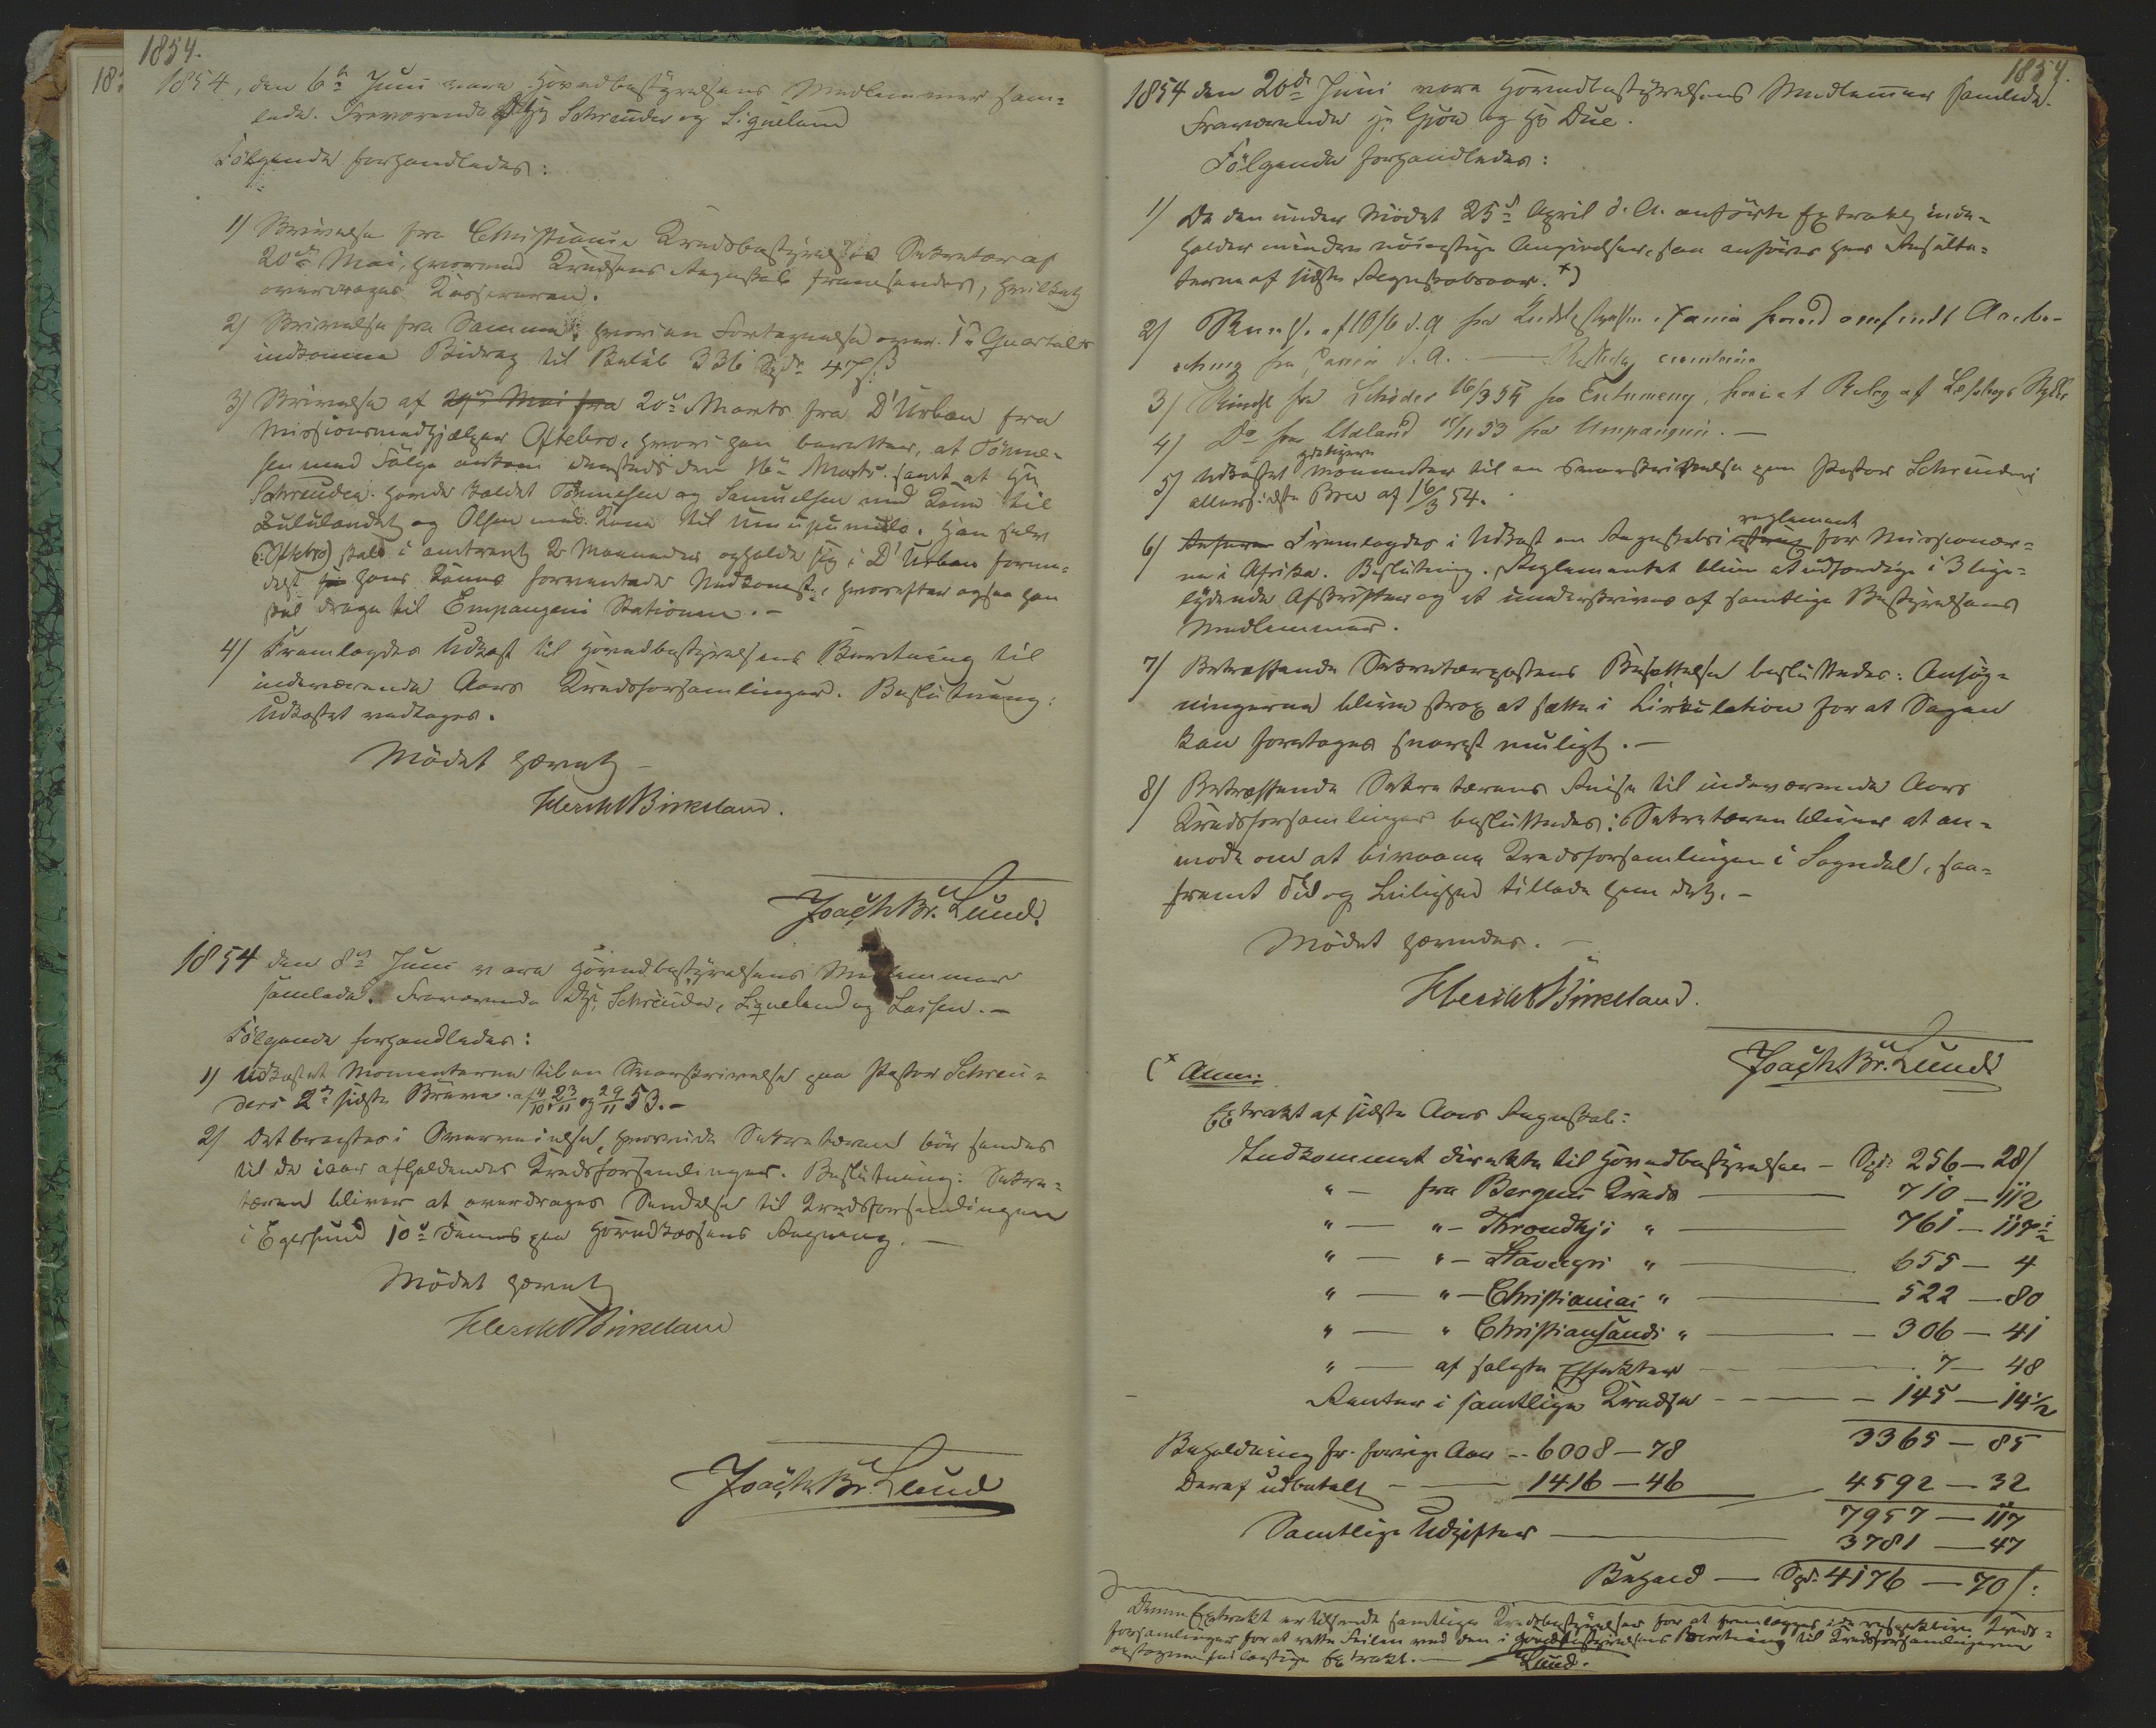 1854.
1854, den 6te Juni vare Hovedbestyrelsens Medlemmer sam=
lede. Fraværende Schreuder og Siqueland
Følgende forhandledes:
1) Skrivelse fra Christiania Kredsbestyrelses Sekretær af
20de Mai, hvormed Kredsens Regnskab fremsendes, hvilket
overdrages Kassereren.
2) Skrivelse fra Samme, hvori en Fortegnelse over 1ste Qvartals
indkomne Bidrag til Beløb 336 Spd 47 ß
3) Skrivelse af 20de Marts fra D'Urban fra
Missionsmedhjælper Oftebro, hvori han beretter, at Tønne=
sen med Følge ankom dersteds den 16de Marts samt at Hr
Schreuder havde kaldet Tønnesen og Samuelsen med Kone til
Zululandet og Olsen med Kone til Umupumulo. Han selv
(Oftebro) skal i omtrent 2 Maaneder opholde sig i D'Urban forme=
delst hans Kones forventede Nedkomst, hvorefter ogsaa han
skal drage til Empangeni Stationen.-
4) Fremlagdes Udkast til Hovedbestyrelsens Beretning til
indeværende Aars Kredsforsamlinger. Beslutning:
Udkastet vedtages.
Mødet hævet -
Elert Birkeland.
Joach. Br. Lund.
1854 den 8de Juni vare Hovedbestyrelsens Medlemmer
samlede. Fraværende Schreuder, Siqueland og Lassen.-
Følgende forhandledes:
1) Udkastet Momenterne til en Svarskrivelse paa Pastor Schreu=
ders 2de sidste Breve af 4/10, 23/11 og 29/11 53.-
2) Det bragtes i Overveielse, hvorvidt Sekretæren bør sendes
til de iaar afholdendes Kredsforsamlinger. Beslutning: Sekre=
tæren bliver at overdrages Sendelse til Kredsforsamlingen
i Egersund 10de dennes paa Hovedkassens Regning.-
Mødet hævet
Elert Birkeland
Joach. Br. Lund
1854.
1854 den 20de Juni vare Hovedbestyrelsens Medlemmer samlede.
Fraværende Hr Gjøa og Hr Due.
Følgende forhandledes:
1) Da den under Mødet 25de April d. A. anførte Extrakt inde=
holder mindre nøiagtige Angivelser, saa anføres her Resulta=
terne af sidste Regnskabsaar. x)
2) af 10/6 d. A. fra
fra d. A.
3) fra Schreuder 16/3 54 fra Entumeny, hvori
4) Do fra Udland 11/53 fra Umpangeni.-
5) Udkastet yderligere Momenter til en Svarskrivelse paa Pastor Schreuders
allersidste Brev af 16/3 54.
6) Fremlagdes i Udkast en Regnskabs reglement for Missionær=
ne i Afrika. Beslutning. Reglementet bliver at udfærdige i 3 lige=
lydende Afskrifter og at underskrives af samtlige Bestyrelsens
Medlemmer.
7) Betræffende Sekretærpostens Besættelse besluttedes: Ansøg=
ningerne blive strax at sætte i Cirkulation for at Sagen
kan foretages snarest muligt.-
8) Betræffende Sekretærens Reise til indeværende Aars
Kredsforsamlinger besluttedes: Sekretæren bliver at an=
mode om at bivaane Kredsforsamlingen i Sogndal, saa=
fremt Tid og Leilighed tillade ham det.-
Mødet hævedes.-
Elert Birkeland.
Joach. Br. Lund
(x Anm:
Extrakt af sidste Aars Regnskab:
Indkommet direkte til Hovedbestyrelsen - Spd. 256 - 28 ß
" - fra Bergens Kreds - 710 - 112
" - " - Throndhjs " - 761 - 117 1/2
" - " - Stavangrs " - 655 - 4
" - " - Christianias " - 522 - 80
" - " Christiansands " - 306 - 41
" - af solgte Effekter - 7 - 48
Renter i samtlige Kredse - 145 - 14 1/2
3365 - 85
Beholdning fr. forrige Aar - 6008 - 78
Deraf udbetalt - 1416 - 46 4592 - 32
7957 - 117
Samtlige Udgifter - 3781 - 47
Behold - Spd. 4176 - 70 ß:
Denne Extrakt er tilsendt samtlige Kredsbestyrelser for at fremlægges i de respektive Kreds=
forsamlinger for at rette Feilen ved den i Hovedbestyrelsens Beretning til Kredsforsamlingerne
optagne Extrakt.- Lund.